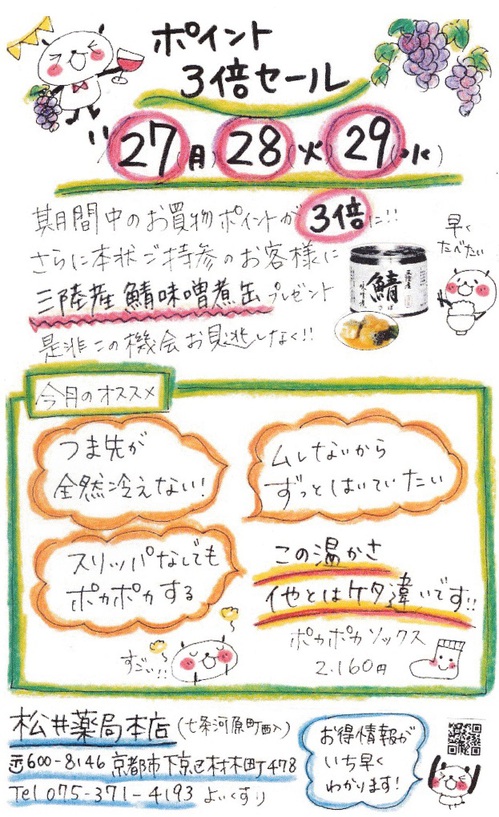 ポイント
3倍セール
11/27(月)28(火)29(水)
期間中のお買物ポイントが3倍に!!
さらに本状ご持参のお客様に
三陸産鯖味噌煮缶プレゼント
是非この機会お見逃しなく!!
早く
たべたい
鯖
今月のオススメ
つま先が
全然冷えない!
ムレないから
ずっとはいていたい
スリッパなしでも
ポカポカする
この温かさ
他とはケタ違いです!!
ポカポカソックス
2.160円
すごい!!
松井薬局本店(七条河原町西入)
〒600-8146 京都市下京区材木町478
Tel 075-371-4193 よいくすり
お得情報が
いち早く
わかります!